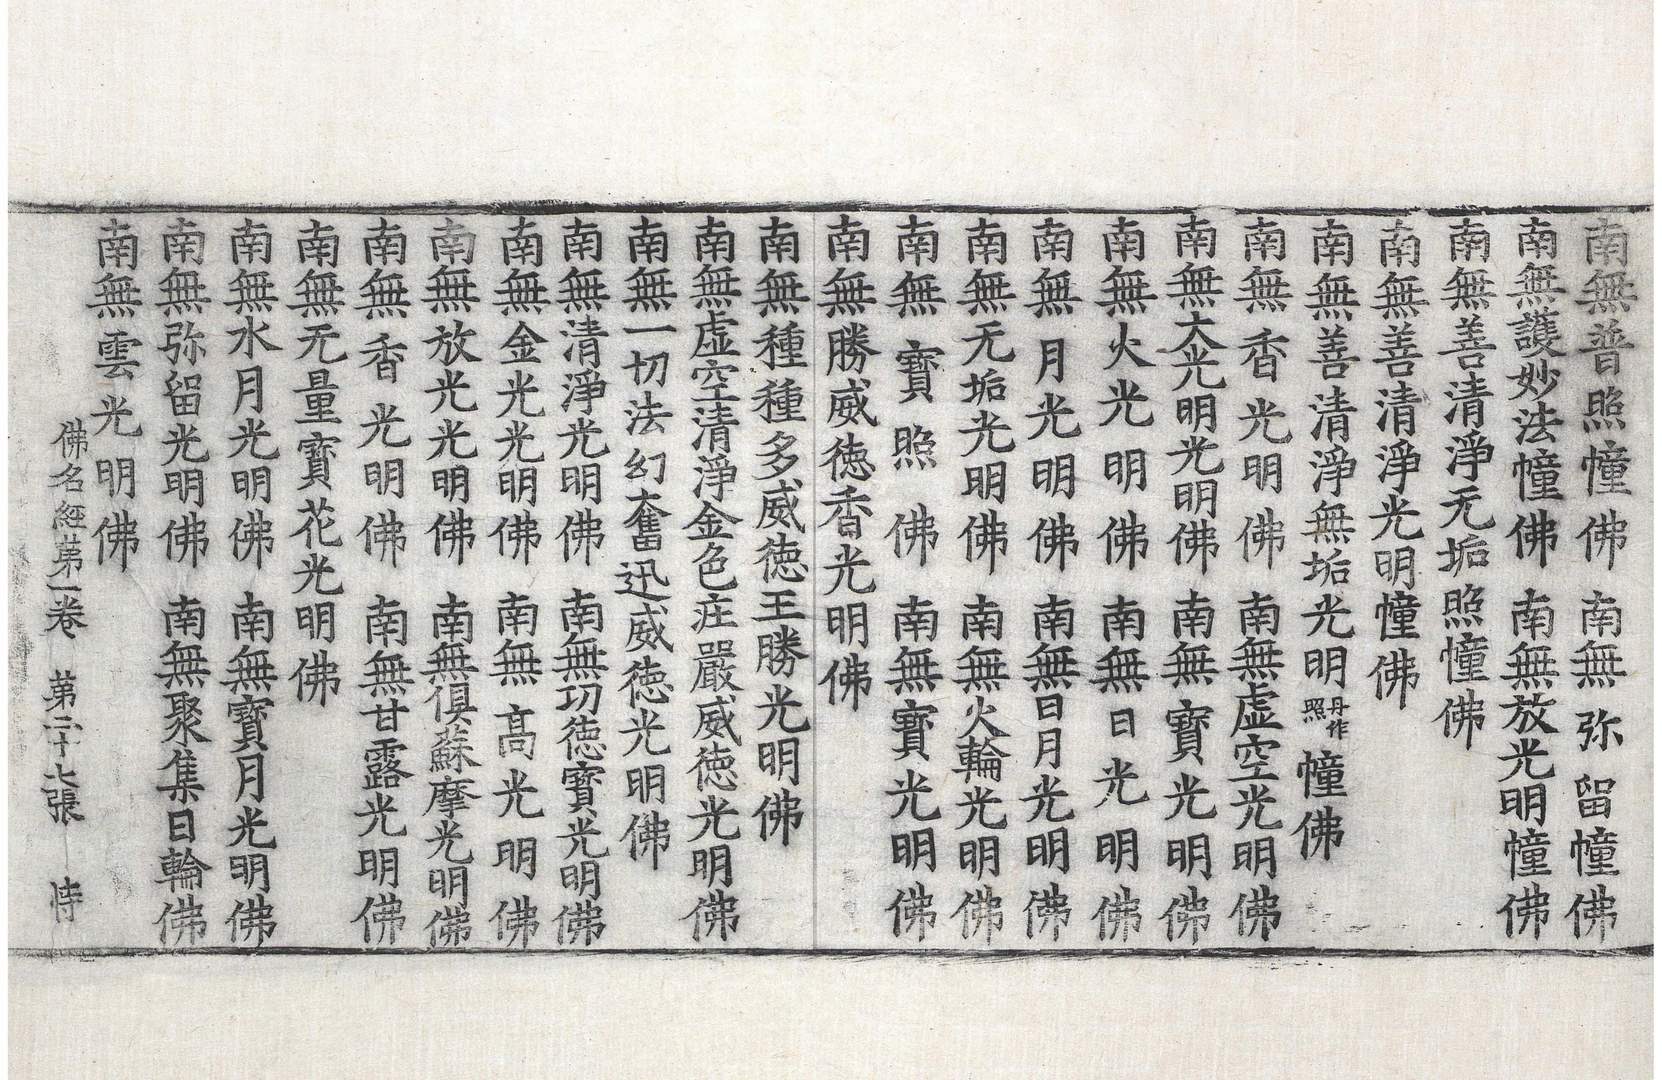 南無普照幢佛　南無弥留幢佛
南無護妙法幢佛　南無放光明幢佛
南無善清淨无垢照幢佛
南無善清淨光明幢佛
南無善清淨無垢光明丹作照幢佛
南無香光明佛　南無虛空光明佛
南無大光明光明佛　南無寶光明佛
南無火光明佛　南無日光明佛
南無月光明佛　南無日月光明佛
南無无垢光明佛　南無火輪光明佛
南無寶照佛　南無寶光明佛
南無勝威德香光明佛
南無種種多威德王勝光明佛
南無虛空清淨金色庄嚴威德光明佛
南無一切法幻奮迅威德光明佛
南無清淨光明佛　南無功德寶光明佛
南無金光光明佛　南無高光明佛
南無放光光明佛　南無俱蘇摩光明佛
南無香光明佛　南無甘露光明佛
南無无量寶花光明佛
南無水月光明佛　南無寶月光明佛
南無弥留光明佛　南無聚集日輪佛
南無雲光明佛
佛名經第一卷　第二十七張　恃